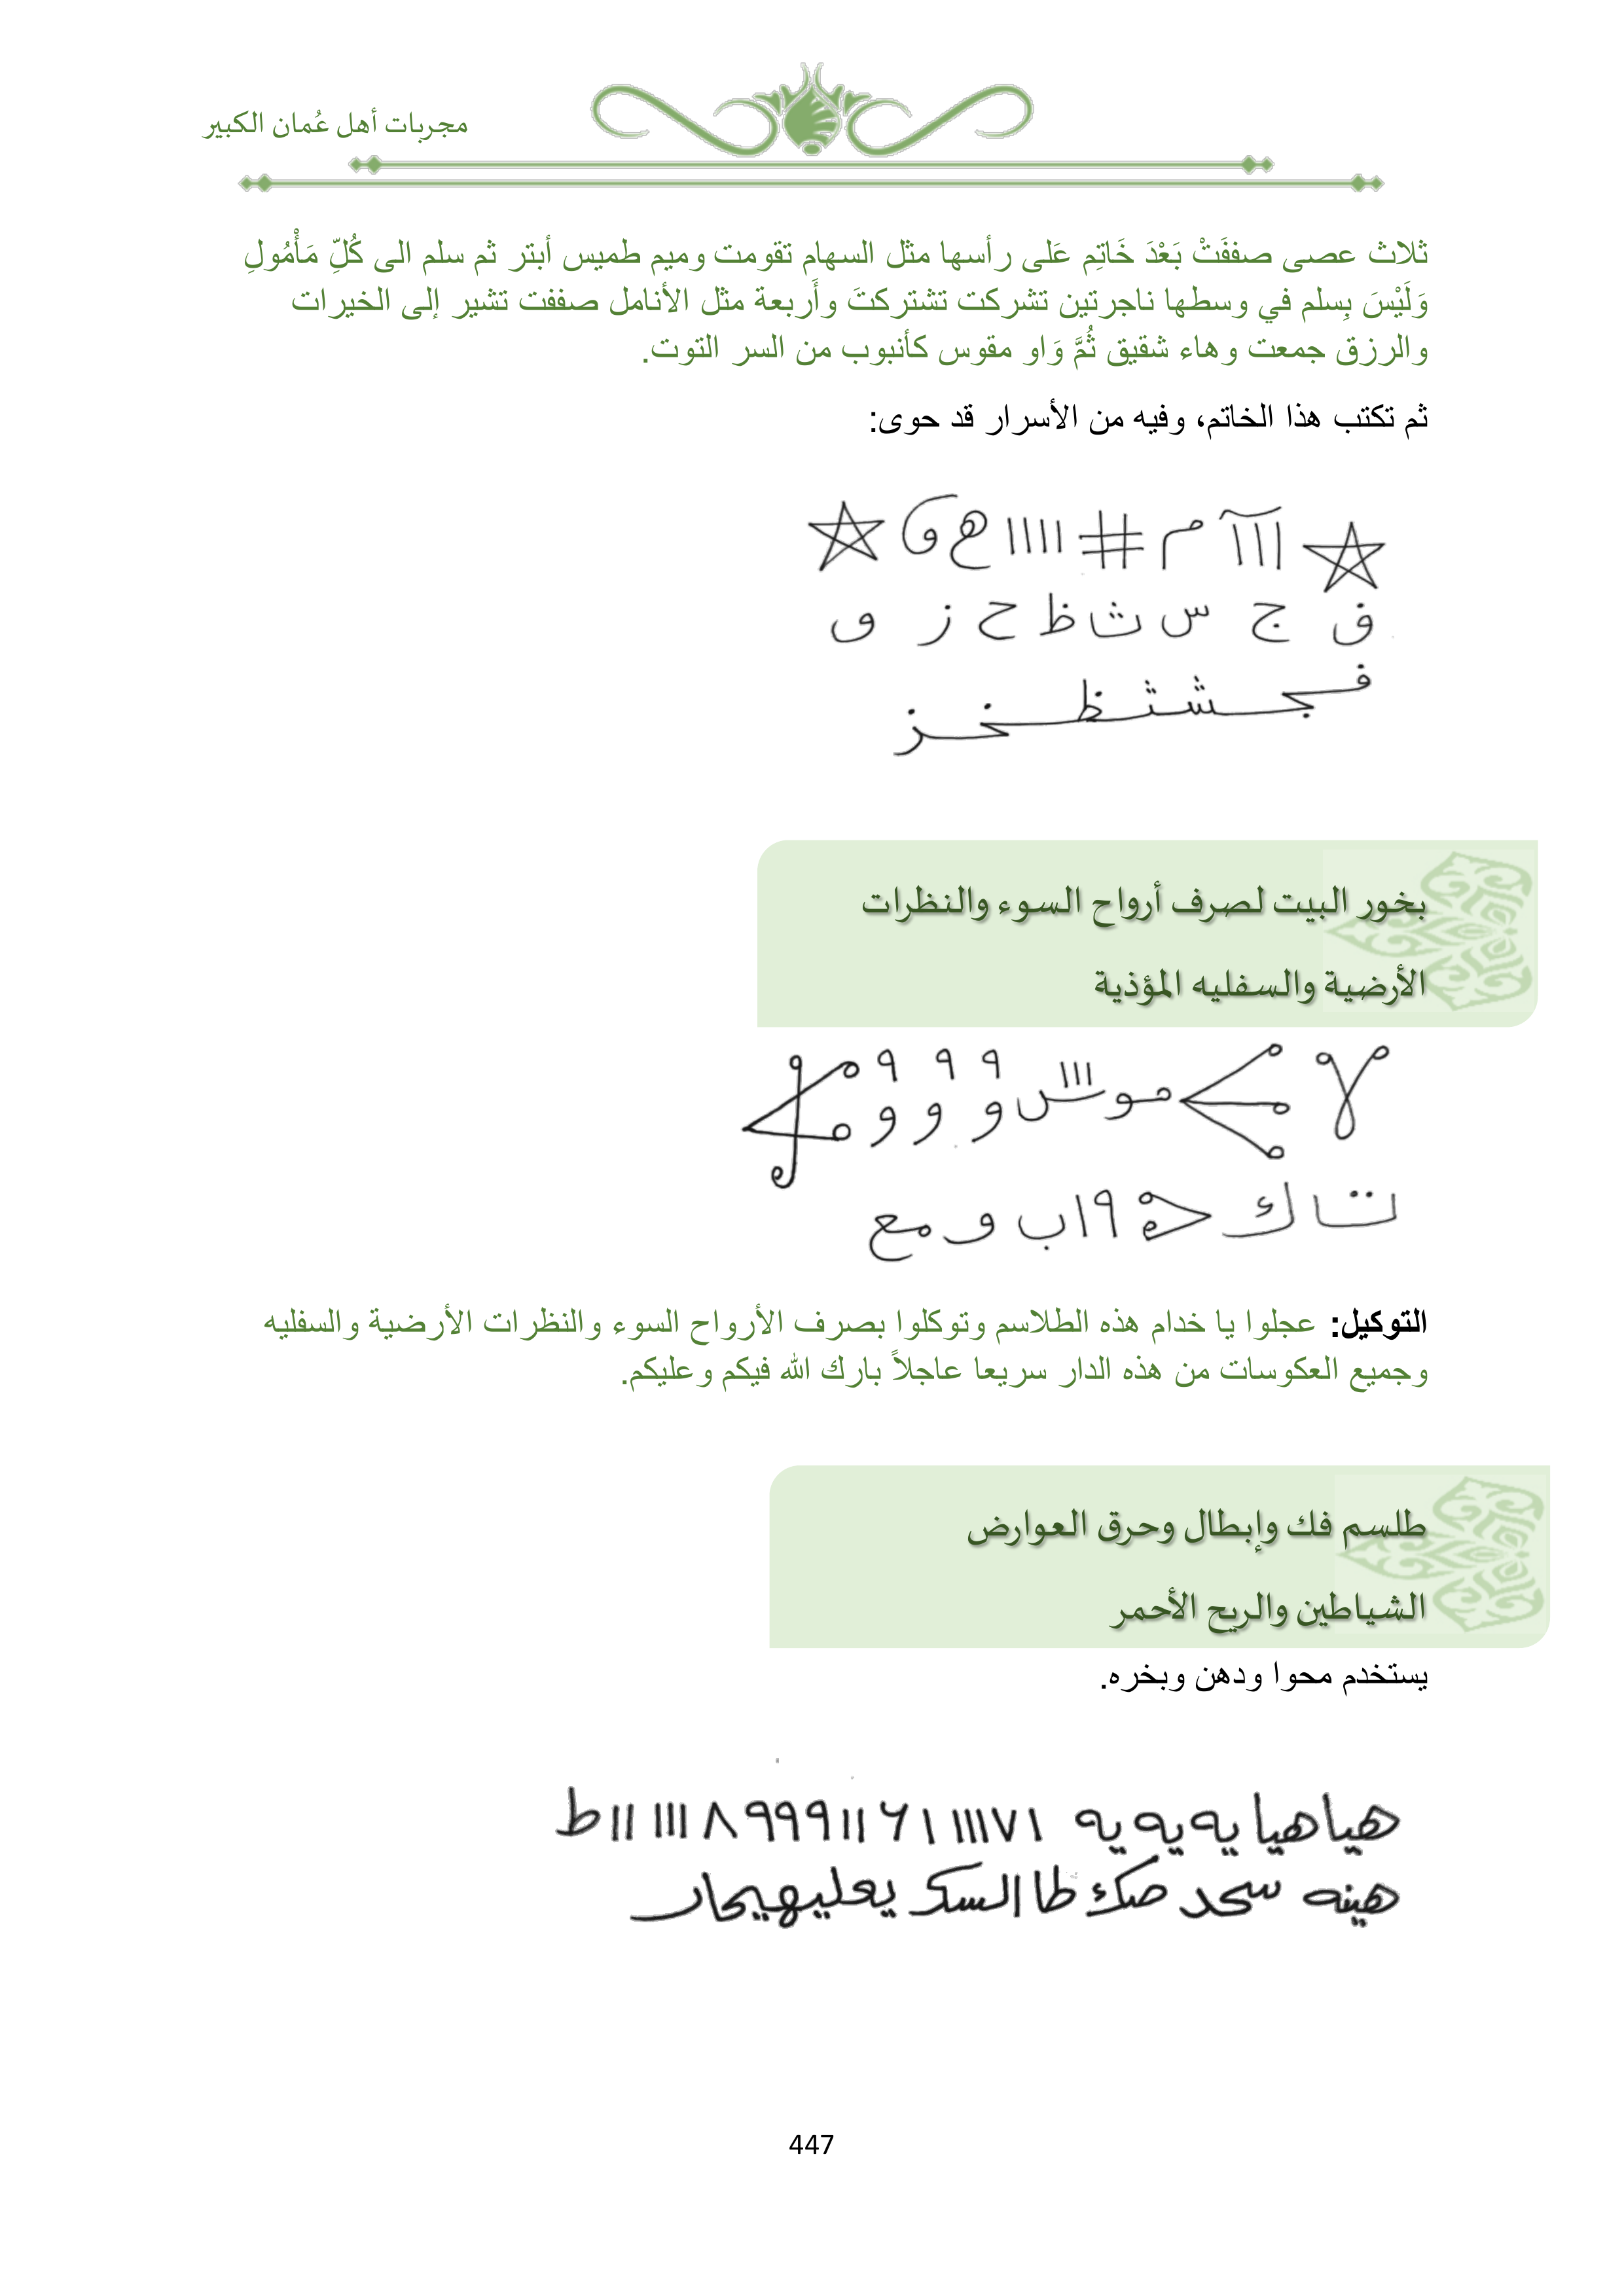 مجربات أهل عُمان الكبير
ثلاث عصى صففَتْ بَعْدَ خَاتِم عَلى رأسها مثل السهام تقومت وميم طميس أبتر ثم سلم الى كُلِّ مَأْمُولِ
وَلَيْسَ بِسلم في وسطها ناجرتين تشركت تشتركتَ وأَربعة مثل الأنامل صففت تشير إلى الخيرات
والرزق جمعت وهاء شقيق ثُمَّ وَاو مقوس كأنبوب من السر التوت.
ثم تكتب هذا الخاتم، وفيه من الأسرار قد حوى:
ااا م # اااا ھ و
ف ج س ث ظ ح ز و
فجشثظخز
بخور البيت لصرف أرواح السوء والنظرات
الأرضية والسفليه المؤذية
٩ ٩ ٩
و و و
ك ١٩ب و مع
التوكيل: عجلوا يا خدام هذه الطلاسم وتوكلوا بصرف الأرواح السوء والنظرات الأرضية والسفليه
وجميع العكوسات من هذه الدار سريعا عاجلاً بارك الله فيكم وعليكم.
طلسم فك وإبطال وحرق العوارض
الشياطين والريح الأحمر
يستخدم محوا ودهن وبخره.
هياهيا يه يه يه ١٧١١١١ ١ ٦ ١١ ٩٩٩ ٨ ١١١ ١١ ط
هينه سحد صكك طا السكر يعليهيحار
447